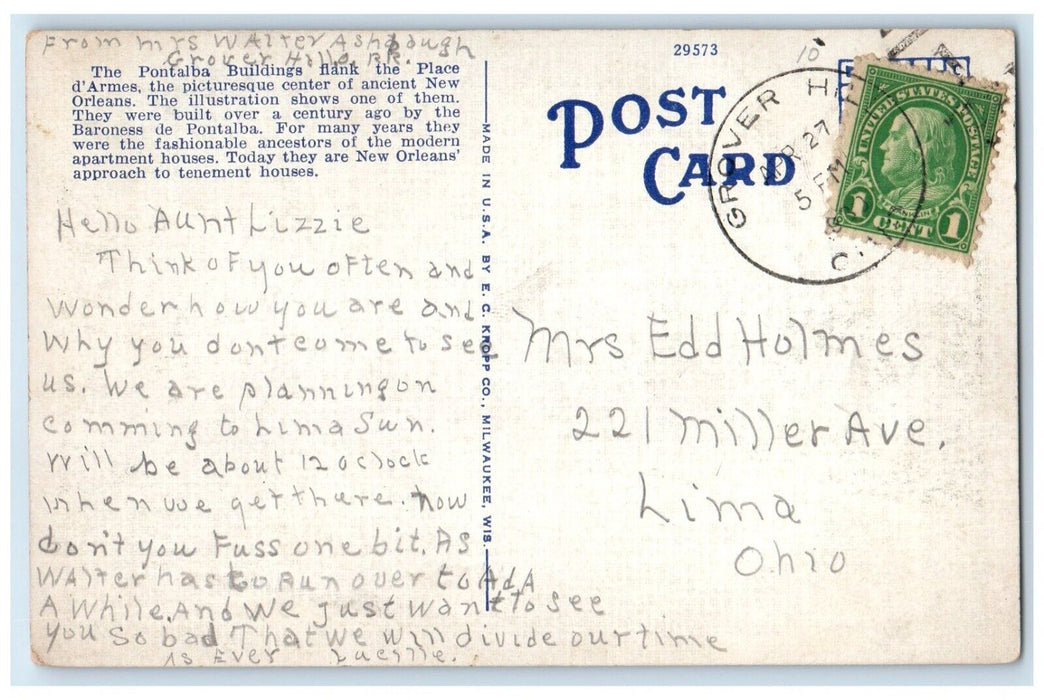 From Mrs Walter Ashbaugh
Grover Hill,
29573
10
The Pontalba Buildings flank the Place
d'Armes, the picturesque center of ancient New
Orleans. The illustration shows one of them.
They were built over a century ago by the
Baroness de Pontalba. For many years they
were the fashionable ancestors of the modern
apartment houses. Today they are New Orleans'
approach to tenement houses.
POST
CARD
GROVER
APR 27
5 PM
UNITED STATES POSTAGE
FRANKLIN
1 CENT 1
Hello Aunt Lizzie
Think of you often and
wonder how you are and
why you dont come to see
us. We are planning on
comming to Lima Sun.
Will be about 12 oclock
when we get there. now
don't you Fuss one bit. As
Walter has to Run over to AdA
A While. And We just want to see
you So bad That we will divide our time
As Ever Lucille.
MADE IN U.S.A. BY E. C. KROPP CO., MILWAUKEE, WIS.
Mrs Edd Holmes
221 Miller Ave.
Lima
Ohio